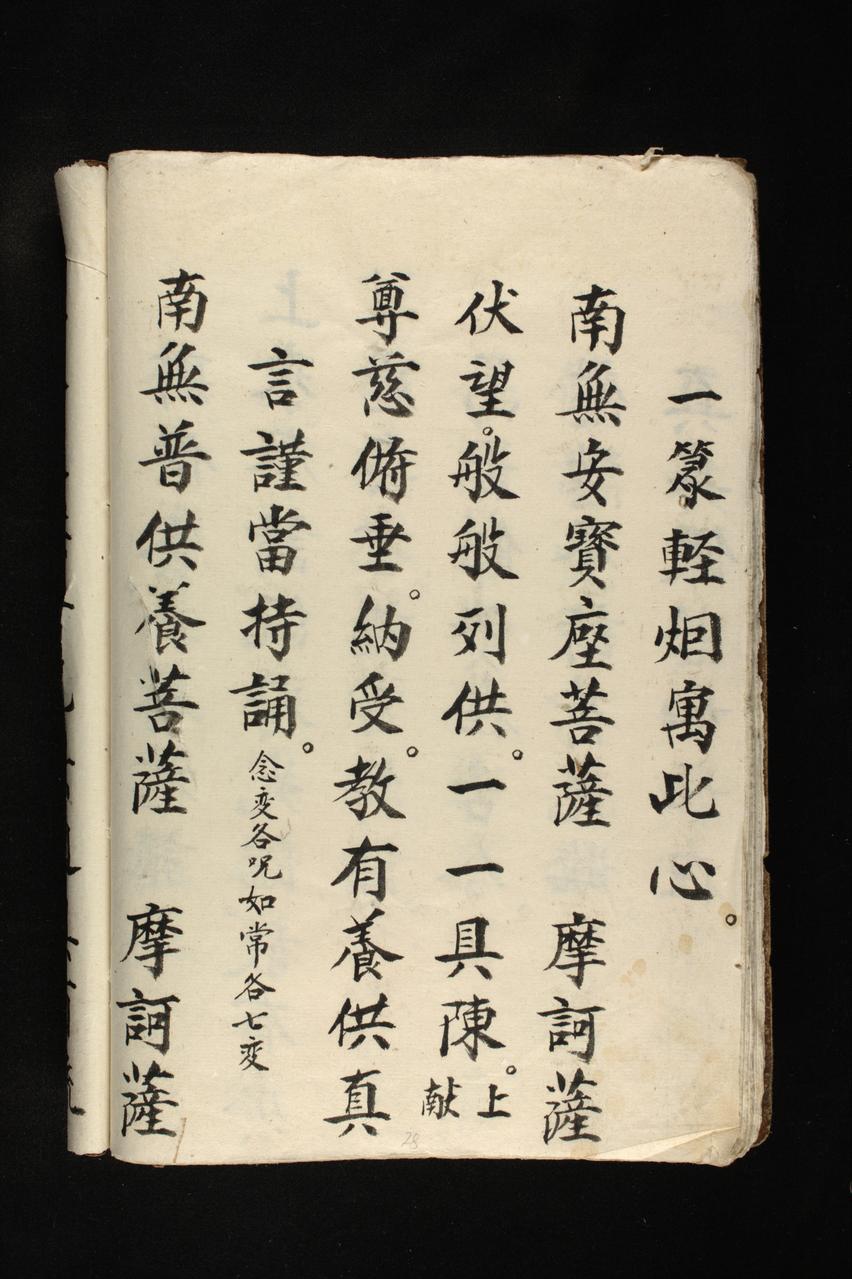 一篆軽烟寓此心。
南無安寶座菩薩　摩訶薩
伏望。般般列供。一一具陳。上献
尊慈俯垂。納受。教有養供真
言謹當持誦。念変各呪如常各七変
南無普供養菩薩　摩訶薩